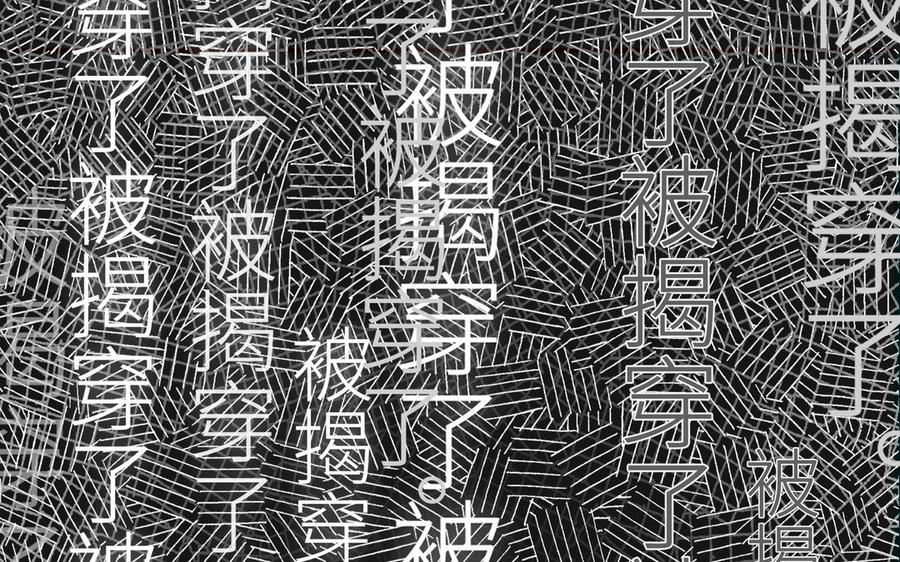 被揭穿了。
被揭
穿了被揭穿了
了被揭穿了。被
了被揭穿了
被揭穿
穿了被揭穿了
穿了被揭穿了被